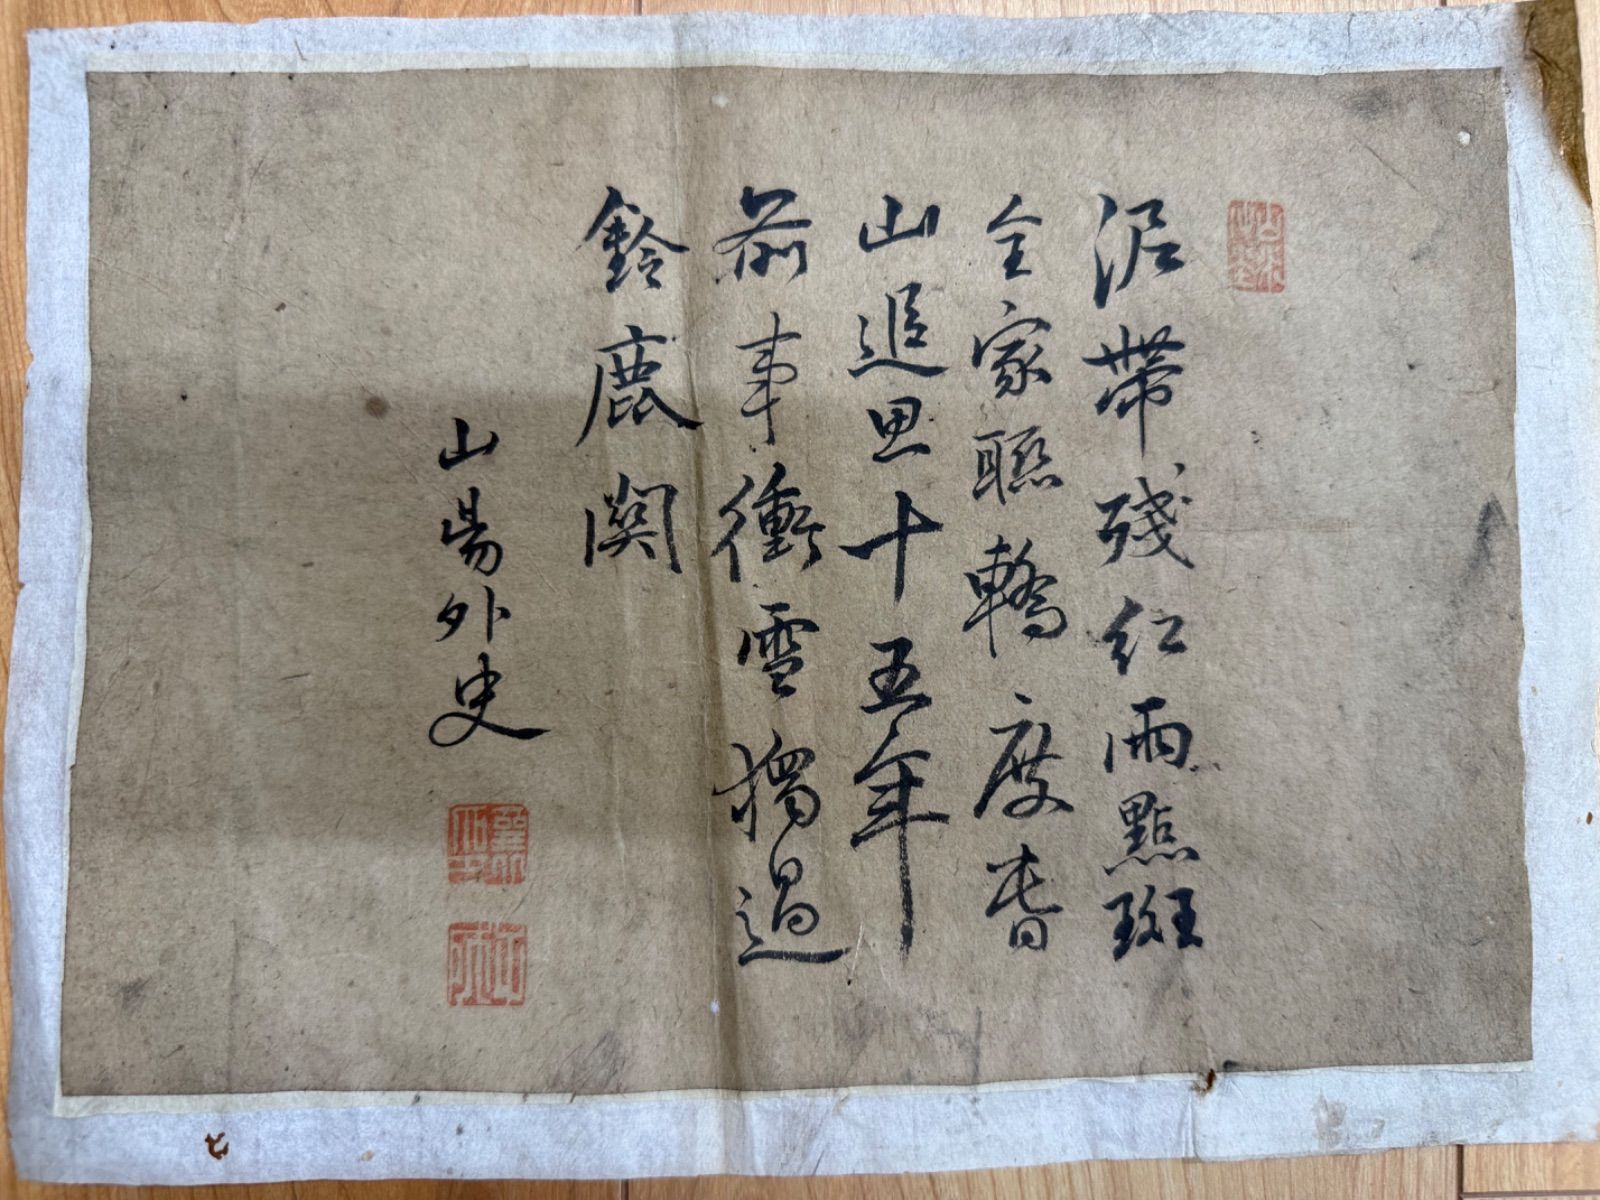 泥帶殘紅雨點斑
全家聯轎度春
山追思十五年
前事衝雪獨過
鈴鹿関
山陽外史